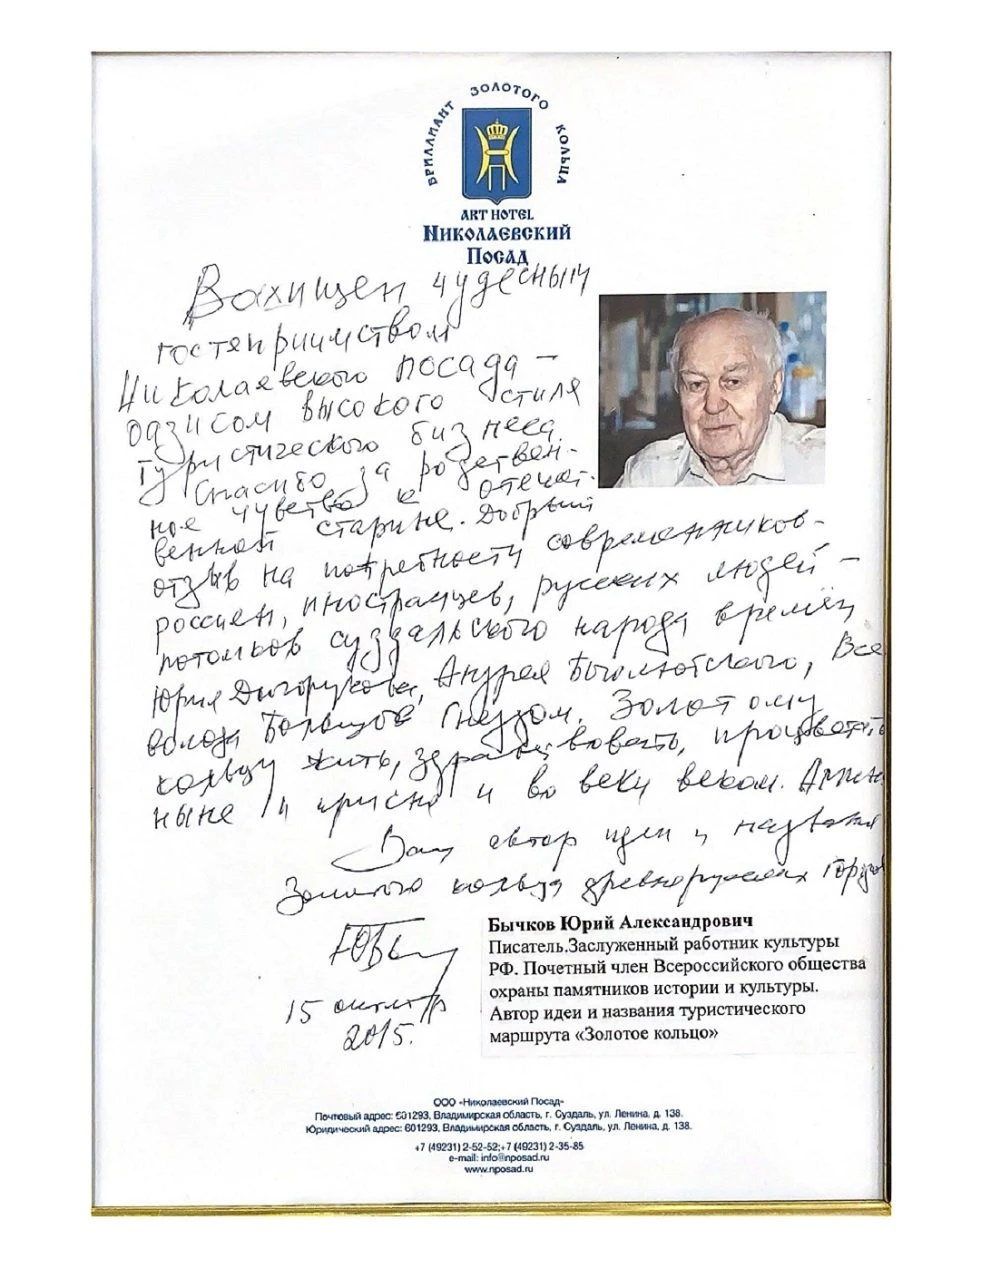 БРИЛЛИАНТ ЗОЛОТОГО КОЛЬЦА
ART HOTEL
НИКОЛАЕВСКИЙ
ПОСАД
Вахищен чудесным
гостеприимством
Николаевского посада –
оазисом высокого стиля
туристического бизнеса.
Спасибо за родствен-
ное чувство к отечест-
венной старине. Добрый
отзыв на потребности современников-
россиян, иностранцев, русских людей –
потомков суздальского народа времён
Юрия Долгорукова, Андрея Боголюбского, Все
волода Большое Гнездом. Золотому
кольцу жить, здравствовать, процветать
ныне и присно и во веки веком. Аминь
Ваш автор идеи и названия
Золотого кольца древнерусских городов
15 октября
2015.
Бычков Юрий Александрович
Писатель.Заслуженный работник культуры
РФ. Почетный член Всероссийского общества
охраны памятников истории и культуры.
Автор идеи и названия туристического
маршрута «Золотое кольцо»
ООО «Николаевский Посад»
Почтовый адрес: 601293, Владимирская область, г. Суздаль, ул. Ленина, д. 138.
Юридический адрес: 601293, Владимирская область, г. Суздаль, ул. Ленина, д. 138.
+7 (49231) 2-52-52;+7 (49231) 2-35-85
e-mail: info@nposad.ru
www.nposad.ru